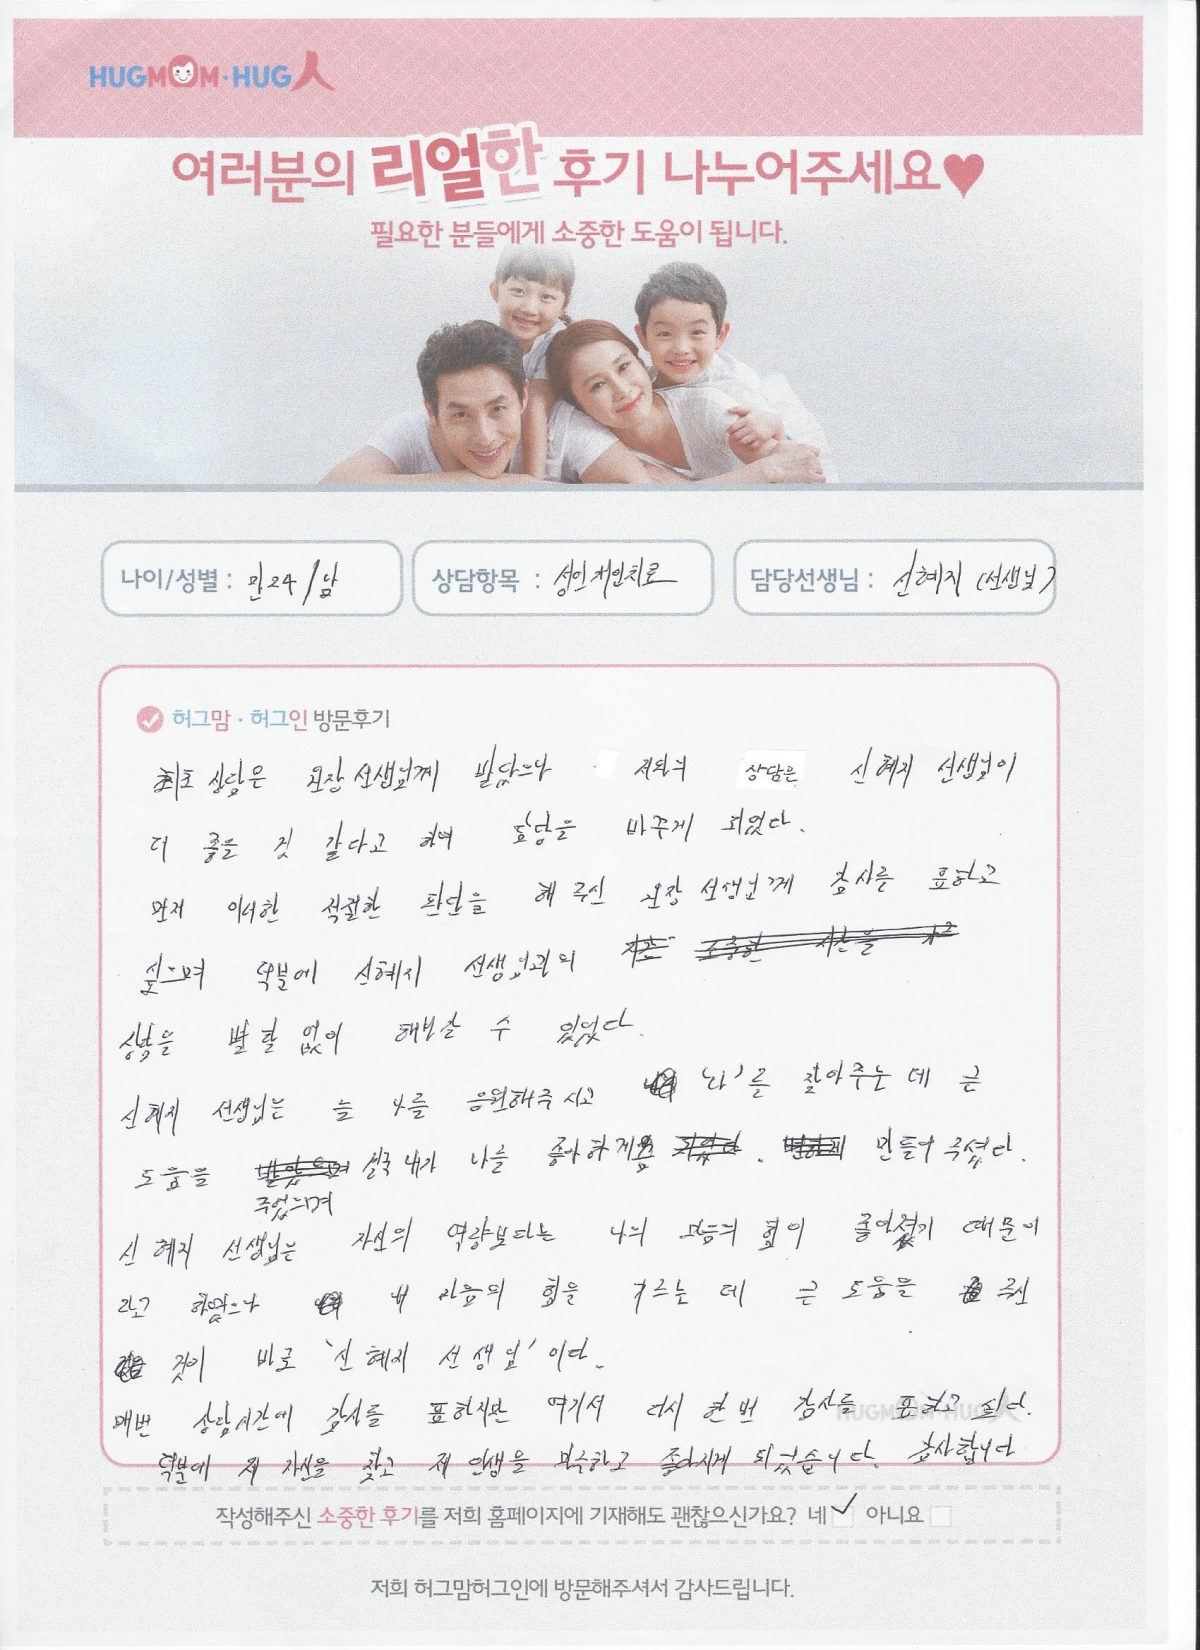 HUGMOM·HUG人
여러분의 리얼한 후기 나누어주세요♥
필요한 분들에게 소중한 도움이 됩니다.
나이/성별 : 만24/남
상담항목 : 성인개인치료
담당선생님 : 신혜지 (선생님)
허그맘·허그인 방문후기
최초 상담은 원장 선생님께 받았으나 저와의 상담은 신혜지 선생님이
더 좋을 것 같다고 하여 담을 바꾸게 되었다.
먼저 이러한 적절한 판단을 해 주신 원장 선생님께 감사를 표하고
싶으며 덕분에 신혜지 선생님과의
상담을 별 탈 없이 해나갈 수 있었다.
신혜지 선생님은 늘 나를 응원해주시고 '나'를 찾아주는 데 큰
도움을 주었으며 결국 내가 나를 좋아하게끔 만들어 주셨다.
신혜지 선생님은 자신의 역량보다는 나의 마음의 힘이 좋아졌기 때문이
라고 하였으나 내 마음의 힘을 기르는 데 큰 도움을 주신
것이 바로 '신혜지 선생님'이다.
매번 상담시간에 감사를 표하지만 여기서 다시 한번 감사를 표하고 싶다.
덕분에 제 자신을 찾고 제 인생을 만족하고 좋아지게 되었습니다. 감사합니다
HUGMOM·HUG人
작성해주신 소중한 후기를 저희 홈페이지에 기재해도 괜찮으신가요? 네 ✓ 아니요
저희 허그맘허그인에 방문해주셔서 감사드립니다.